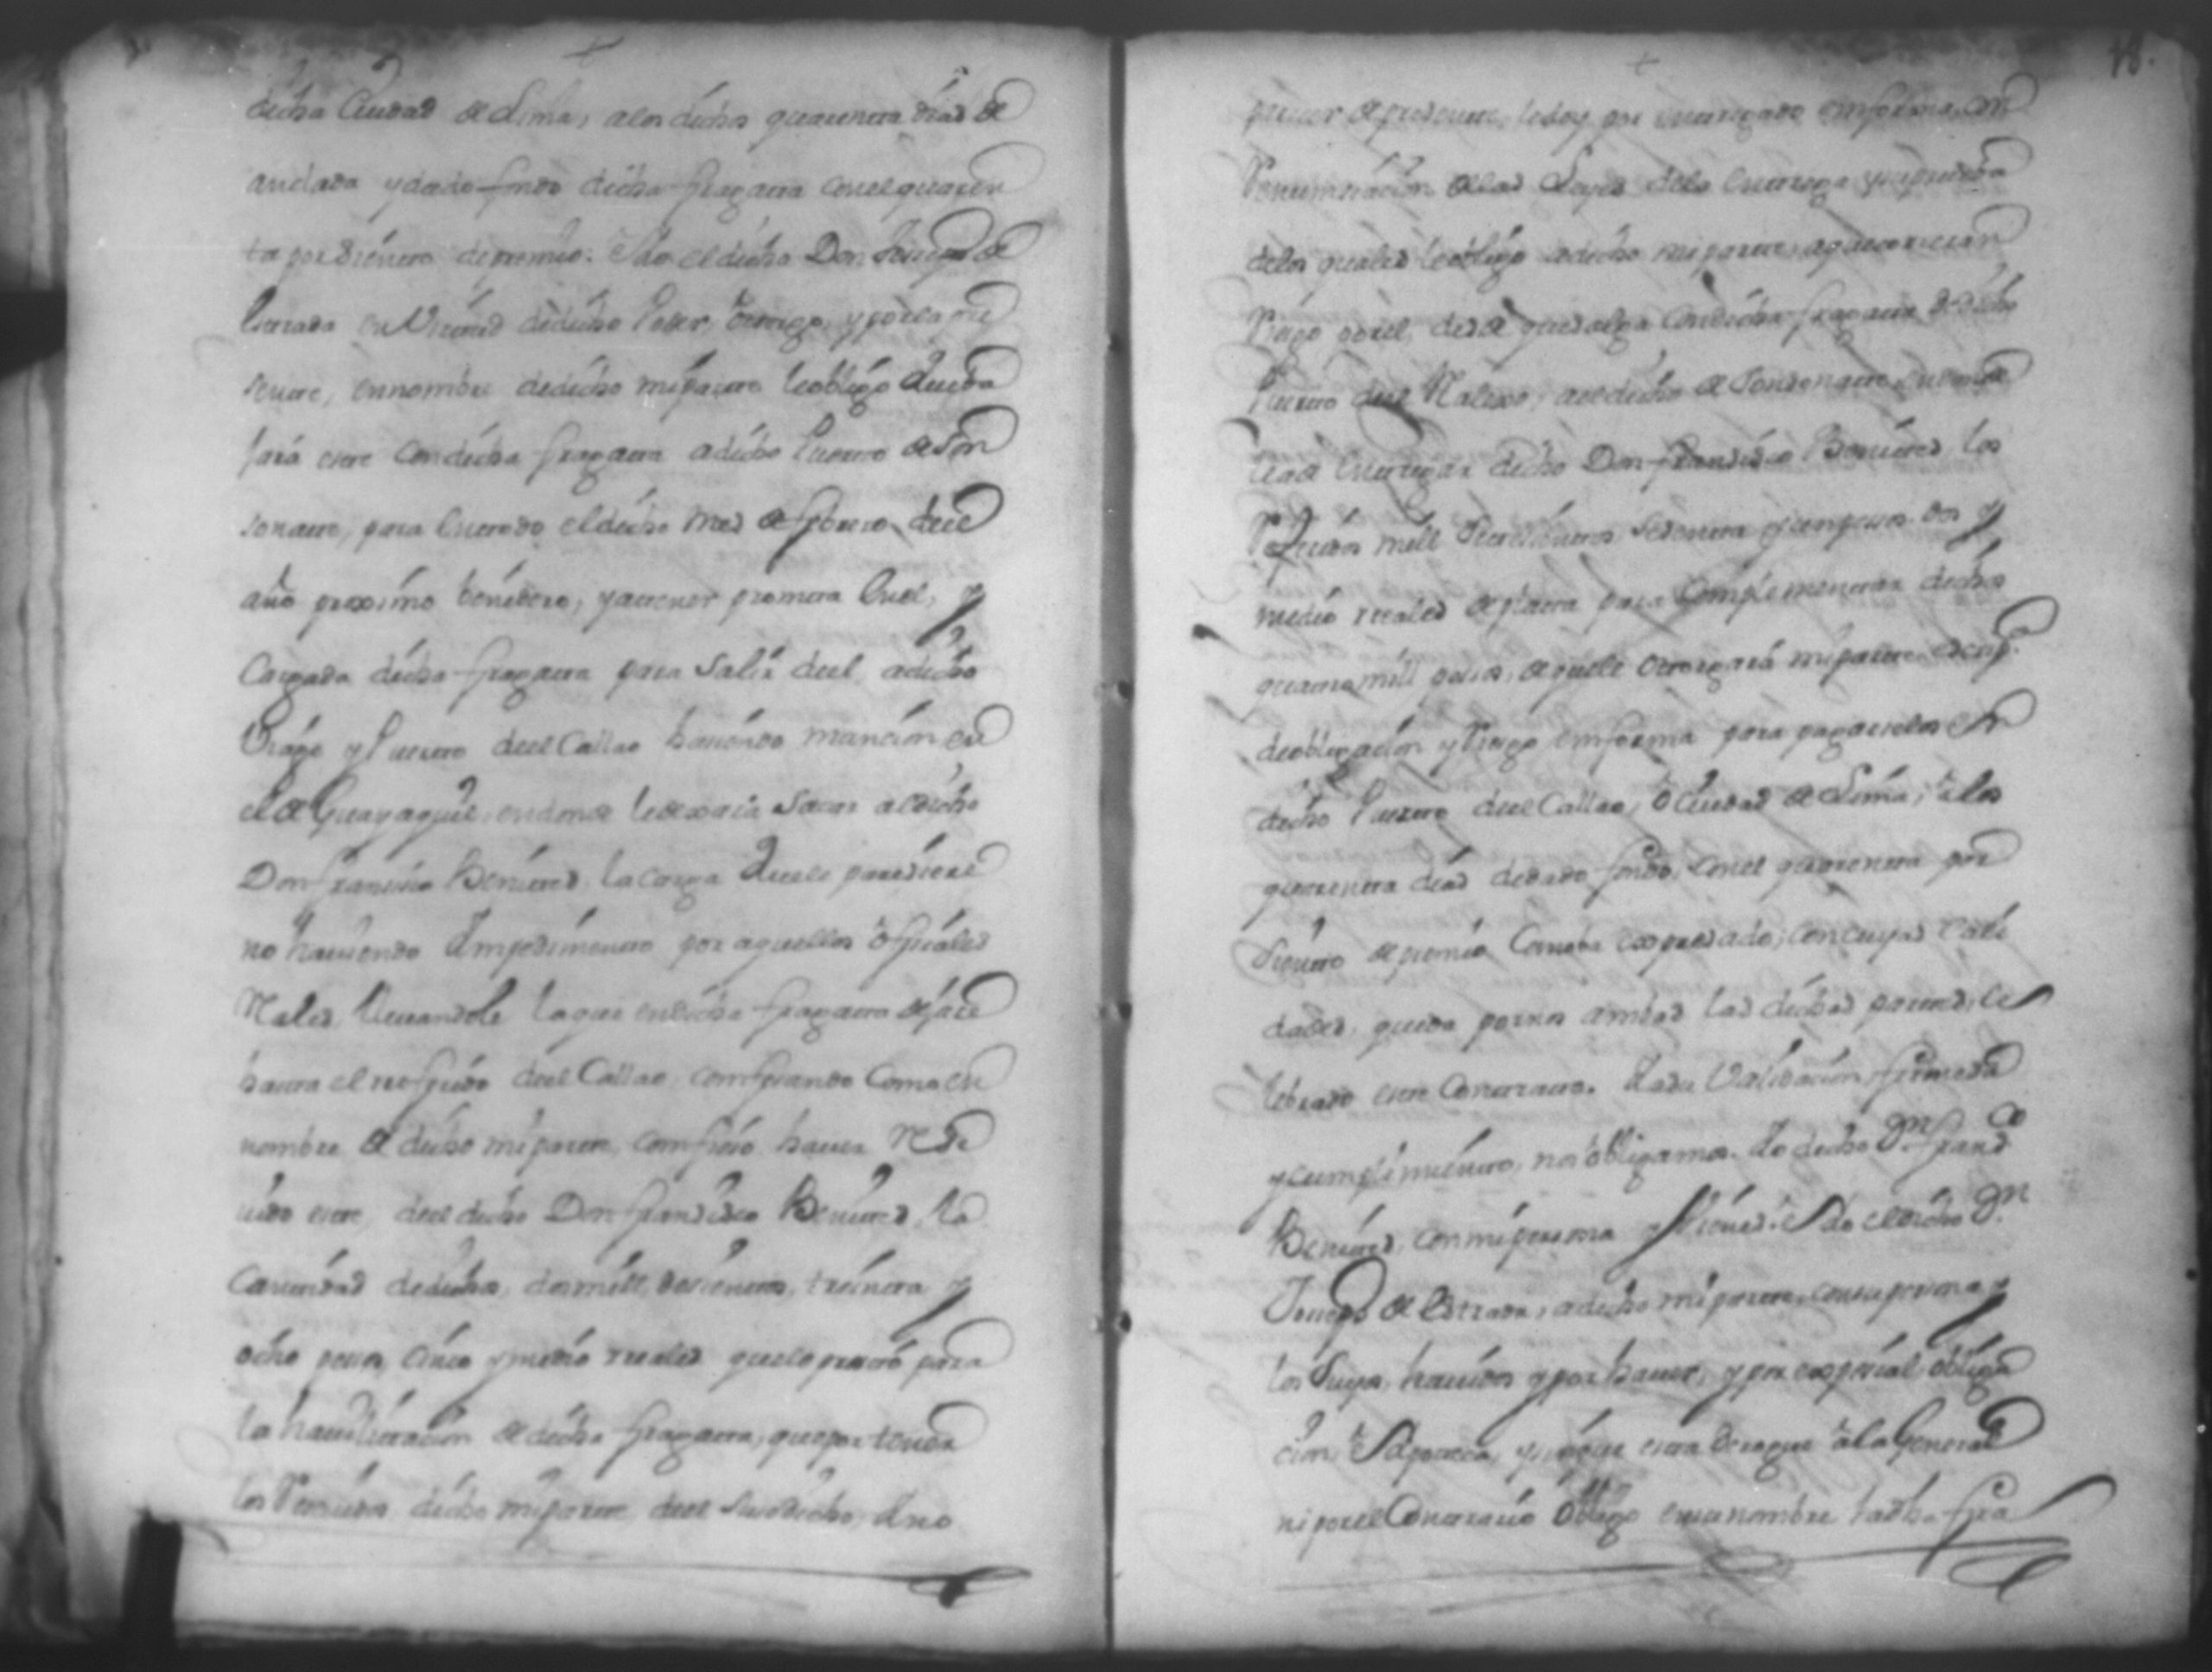 dicha Ciudad de Lima, alos dichos quarenta dias de
anclada y dado fondo dicha fragatta conel quaren
ta por Siento de premio. Yo el dicho Don Juseph de
Estrada en Virtud de dicho Poder, ottorgo, y por la pre
sente, en nombre de dicho mi partte le obligo Que ba
jará este con dicha fragatta a dicho Puerto de Son
sonatte, para en todo el dicho mes de febrero del
año proximo benidero, y a ttener prompta enel, y
Cargada dicha fragatta para Salir del, a dicho
Viage y Puerto del Callao haciendo mancion en
el de Guayaquil, en donde le dexará Sacar al dicho
Don francisco Benittes, la carga Que le paresiere
no haviendo Ympedimento por aquellos ofisiales
Reales, llevandole lugar en dicha fragatta de fletes
hasta el referido del Callao, confesando Como en
nombre de dicho mi partte, confieso haver Resi
uido este, del dicho Don fransisco Benittes, la
Cantidad de dichos, dos mill, dosientos, treinta y
ocho pesos, sinco y medio rreales que le prestó para
la havilitacion de dicha fragatta, que por tener
los Reseuidos dicho mi partte del Susodicho, Y no
pareser de presente, le doy por entregado en forma, con
Renunsiacion de las Leyes dela Entrega y su prueba
delos quales le obligo a dicho mi partte, a que corra con
Riesgo por el, desde que salga con dicha fragatta de dicho
Puerto del Realexo, a el dicho de Sonsonatte, en donde
le ade Entregar dicho Don fransisco Benittes, los
mill Settesientos Sesenta y un pesos dos y
medio rreales de platta para Complementar dichos
quatro mill pesos, de que le Ottorgará mi partte escrip.ª
de obligacion y Riesgo en forma para pagarselos en
dicho Puerto del Callao, ò Ciudad de Lima, à los
quarenta dias de dado fondo, con el quarenta por
Siento de premio Como ba expresado; con cuyas Cali
dades, queda por nos ambas las dichas parttes, ce
lebrado este Contratto. Y a su Validacion, firmesa
y cumplimiento, nos obligamos. Yo dicho D.n fran.co
Benittes, con mi persona y Vienes. Y Yo el dicho D.n
Juseph de Estrada, a dicho mi partte, con su persona y
los Suyos, havidos y por haver, y por expesial obliga
cion, è Ypoteca, y sin que esta derogue à la General
ni por el Contrario Obligo en su nombre la dha fra